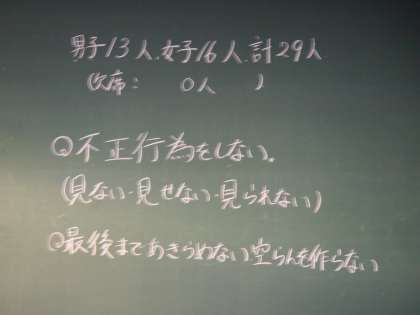 男子13人、女子16人、計29人
(欠席： 0人 )
◎不正行為をしない。
(見ない・見せない・見られない)
◎最後まであきらめない空らんを作らない